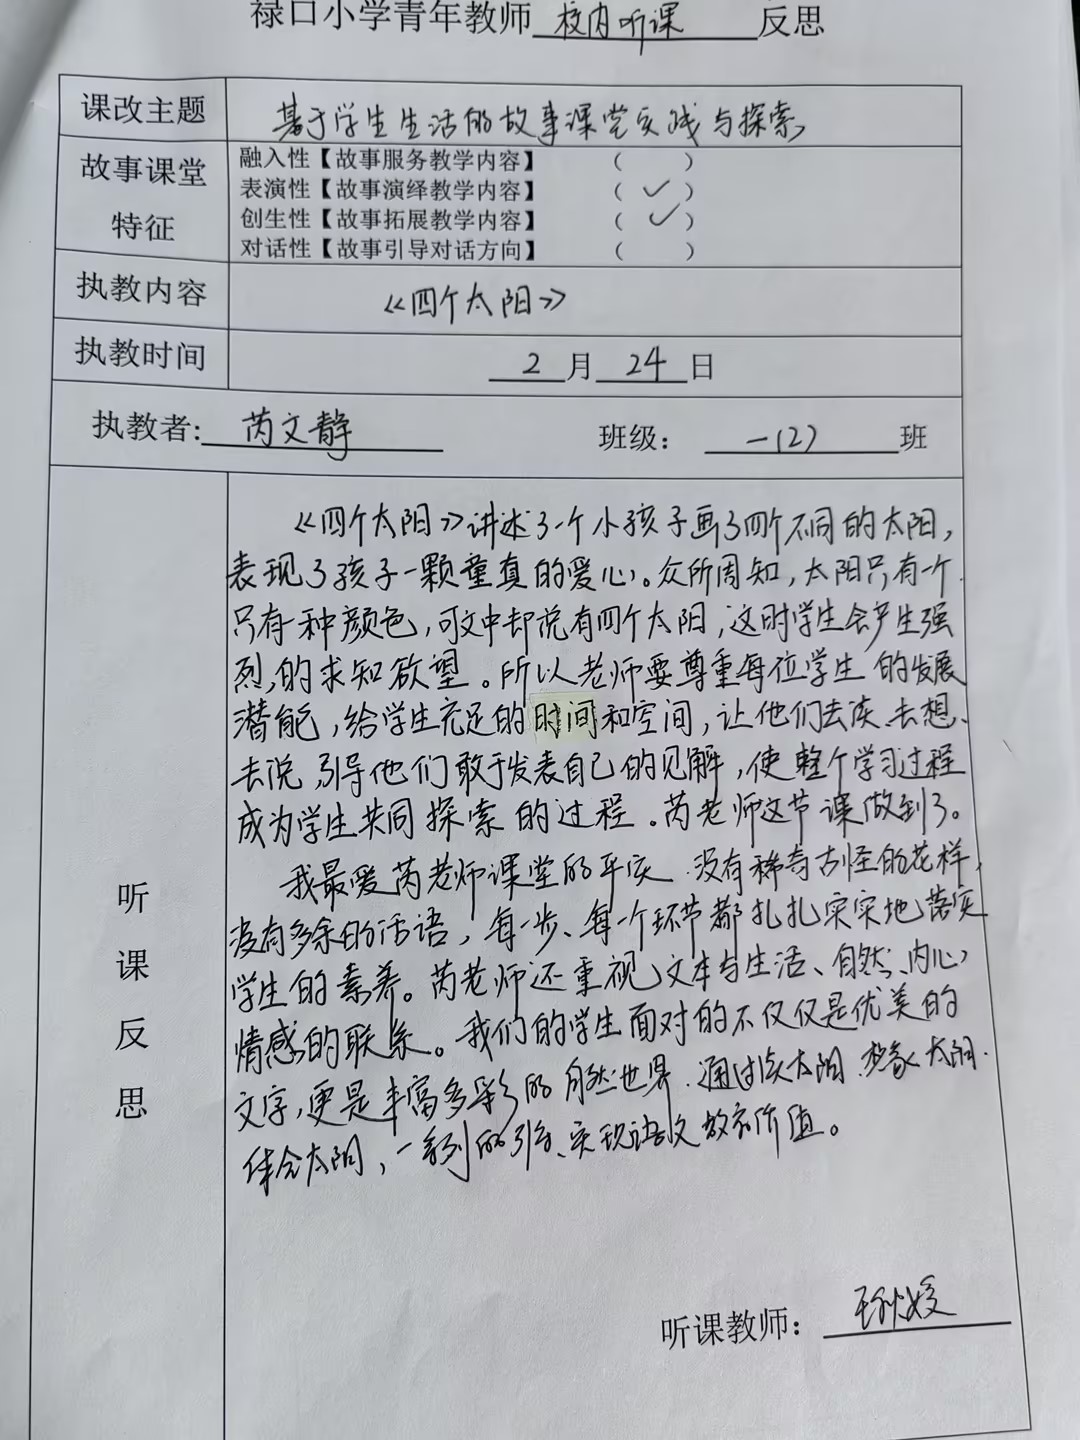 禄口小学青年教师校内听课反思
课改主题 基于学生生活的故事课堂实践与探索
故事课堂
特征
融入性【故事服务教学内容】 （ ）
表演性【故事演绎教学内容】 （ ✓ ）
创生性【故事拓展教学内容】 （ ✓ ）
对话性【故事引导对话方向】 （ ）
执教内容 《四个太阳》
执教时间 2月24日
执教者: 芮文静 班级： 一(2) 班
听课反思
《四个太阳》讲述了一个小孩子画了四个不同的太阳，
表现了孩子一颗童真的爱心。众所周知，太阳只有一个
只有一种颜色，可文中却说有四个太阳，这时学生会产生强
烈的求知欲望。所以老师要尊重每位学生的发展
潜能，给学生充足的时间和空间，让他们去读、去想、
去说，引导他们敢于发表自己的见解，使整个学习过程
成为学生共同探索的过程。芮老师这节课做到了。
我最爱芮老师课堂的平实，没有稀奇古怪的花样，
没有多余的话语，每一步、每一个环节都扎扎实实地落实
学生的素养。芮老师还重视文本与生活、自然、内心
情感的联系。我们的学生面对的不仅仅是优美的
文字，更是丰富多彩的自然世界。通过读太阳、想象太阳、
体会太阳，一系列的引导、实现语文教育价值。
听课教师：